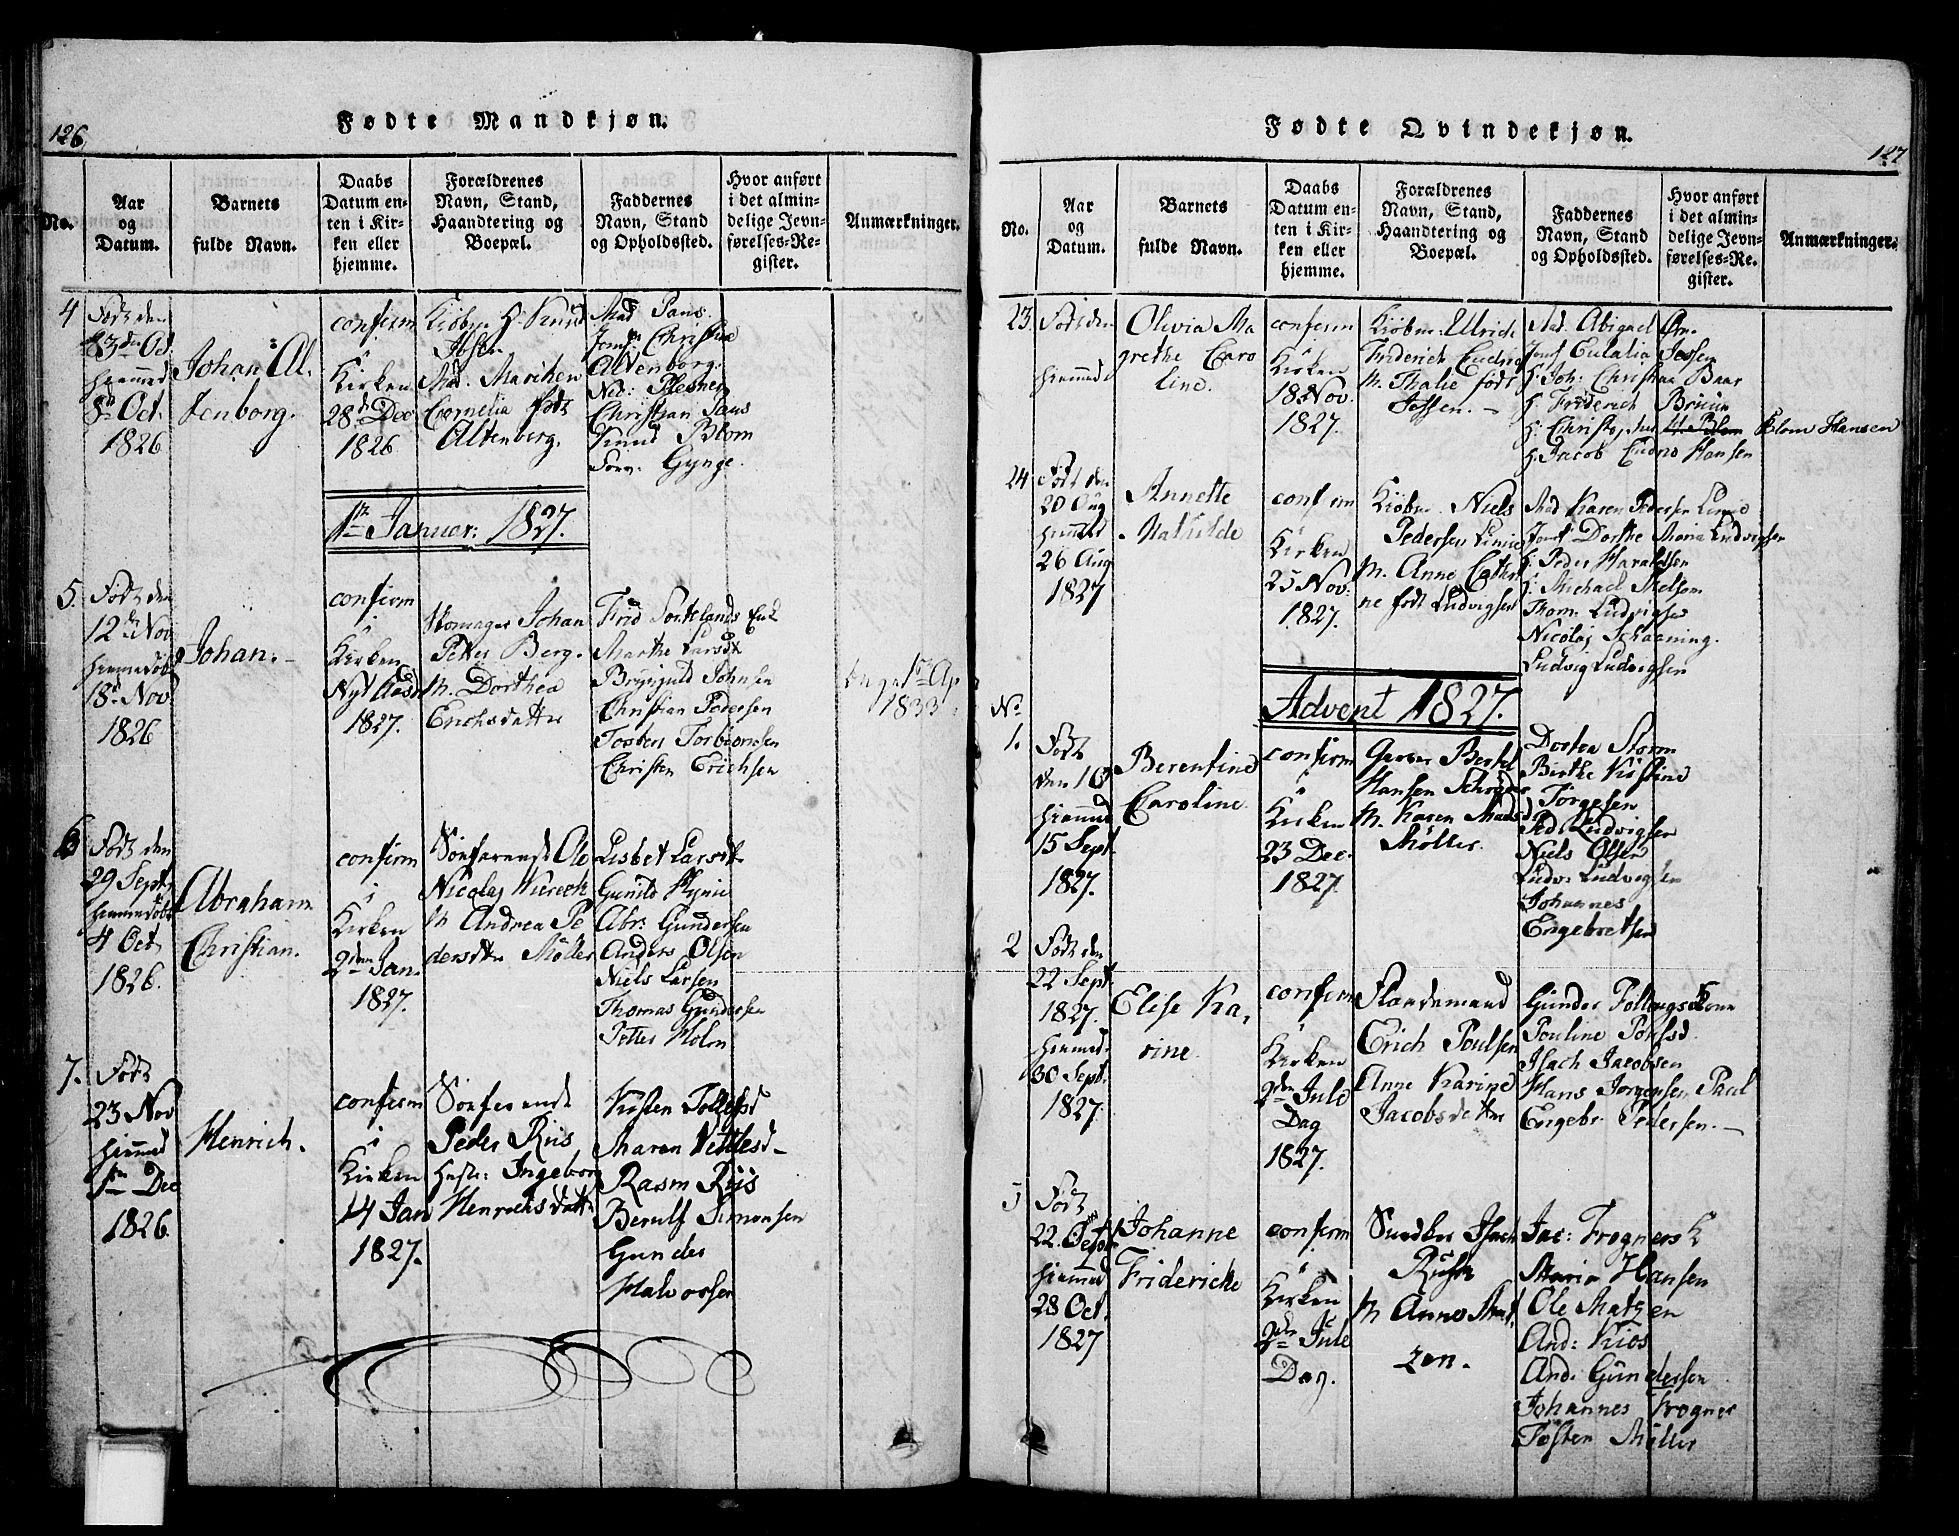 126
Fødte Mandkjøn.
No.
Aar
og
Datum.
Barnets
fulde Navn.
Daabs
Datum en-
ten i Kir-
ken eller
hjemme.
Forældrenes
Navn, Stand,
Haandtering og
Boepæl.
Faddernes
Navn, Stand
og Opholdssted.
Hvor anført
i det almin-
delige Jevn-
førelses-Re-
gister.
Anmærkninger.
4
Født den
Oct.
1826
Johan Al-
tenborg.
confirm
i
Kirken
28d Dec
1826
Kiøbm. H. Knud
Ibsen
Mad. Marichen
Cornelia født
Altenberg.
Mad Paus
Jomf. Christine
Altenborg.
Ned: Plesner
Christian Paus
Knud Blom
Forv: Gynge.
1ste Januar: 1827.
5.
Født den
12te Nov
hiemmedøbt
18d Nov
1826
Johan.
confirm
i
Kirken
Nyt Aarsd
1827.
Skomager Johan
Petter Berg.
M. Dorthea
Erichsdatter
Frid Enk
Marthe Larsdt
Johnsen
Christian Pedersen
Tosten Torbiornsen
Christen Erichsen
1833
6
Født den
29 Sept,
hiemmedøbt
4 Oct,
1826.
Abraham
Christian.
confirm
i
Kirken
2den Jan.
1827.
Søefarende Ole
Nicolaj
M Andrea Pe
dersdtr Møller
Lisbet Larsdtr
Gunild
Abr: Gundersen
Anders Olsen
Niels Larsen
Thomas Gundersen
Petter Holm
7.
Født
23 Nov
hiemmed
1ste Dec
1826.
Henrich.
confirm
i
Kirken
14 Jan
1827.
Søefarende
Peder Riis
Hustr: Ingeborg
Henrichsdatter
Kisten Tollefsd
Maren Vetlesd
Rasm Riis
Berulf Simonsen
Gunder
Halvorsen
127
Fødte Qvindekjøn.
No.
Aar
og
Datum.
Barnets
fulde Navn.
Daabs
Datum en-
ten i Kir-
ken eller
hjemme.
Forældrenes
Navn, Stand,
Haandtering og
Boepæl.
Faddernes
Navn, Stand
og Opholdssted.
Hvor anført
i det almin-
delige Jevn-
førelses-Re-
gister.
Anmærkninger.
23
Født den
hiemmed
Olivia Ma
grethe Caro
line.
confirm
i
Kirken
18 Nov.
1827.
Kiøbm: Ulrich
Friderich Cudrio
M. Thalie født
Jessen.
Mad. Abigael
Jomf Eulalia Jessen
H. Joh: Christian Baar
H. Friderich Bruun
H. Jacob Cudrio Hansen
Blom Hansen
24
Født den
20 Aug
hiemmed
26 Aug
1827
Annette
Mathilde
confirm
i
Kirken
25 Nov:
1827.
Kiøbm. Niels
Pedersen
M. Anne Cathri
ne født Ludvigsen
Mad Karen Pedersen
Jomf Dorthe Maria Ludvigsen
H. Peder Haraldsen
H. Michael Nielsen
Thom: Ludvigsen
Nicolaj Schanning.
Ludvig Ludvigsen
Advent 1827.
No
1.
Født
den 10
hiemmed
15 Sept.
1827.
Berentine
Caroline.
confirm
i
Kirken
23 Dec.
1827.
Garver Bertel
Hansen Schrøder
M. Karen Madsd
Møller.
Dortea Storm
Birthe Kistine
Torgesen
Ped: Ludvigsen
Niels Olsen
Ludv: Ludvigsen
Johannes
Engebretsen
2
Født den
22 Sept
1827.
hiemmed.
30 Sept.
1827.
Elise Ka-
rine.
confirm
i
Kirken
2den Jule
Dag
1827.
Strandmand
Erich Poulsen
Anne Karine
Jacobsdatter
Gunder Kone
Pouline Poulsd.
Isach Jacobsen
Hans Jørgensen Paul
Engebr Pedersen.
3
Født
22. Oct.
hiemmed
28 Oct.
1827
Johanne
Frideriche
confirm
i
Kirken
2den Jule
Dag.
Snedker Isach
M Anne Mat
zen.
Jac: Frogners K
Maria Hansen
Ole Matzen
And: Kios
And: Gundersen
Johannes Frogner
Tosten Møller